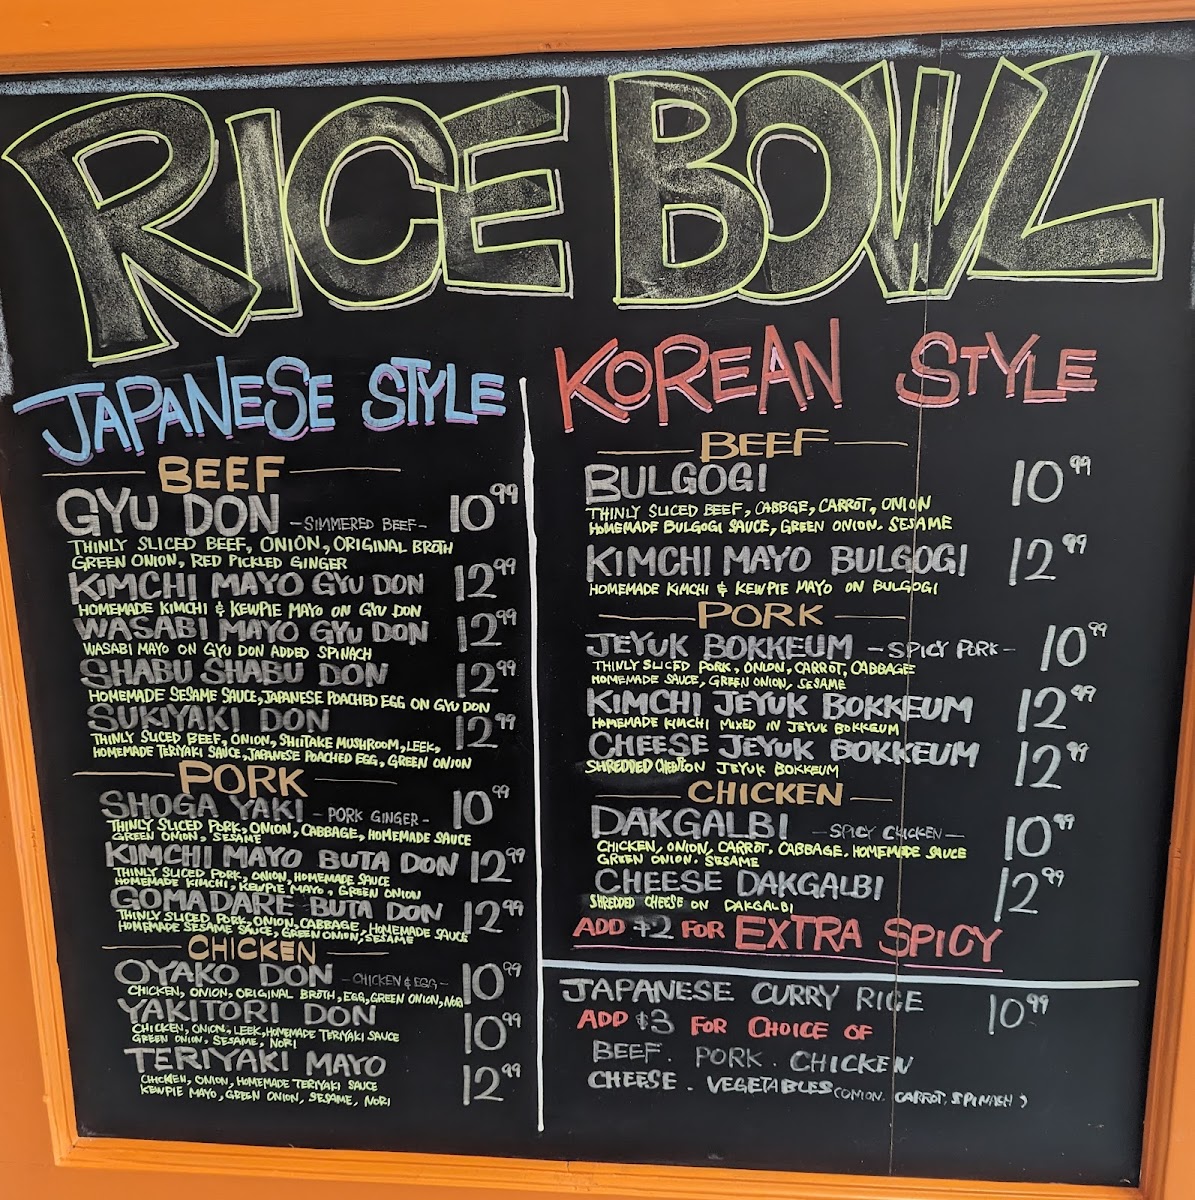 RICE BOWL
JAPANESE STYLE
BEEF
GYU DON -SIMMERED BEEF- 10.99
THINLY SLICED BEEF, ONION, ORIGINAL BROTH
GREEN ONION, RED PICKLED GINGER
KIMCHI MAYO GYU DON 12.99
HOMEMADE KIMCHI & KEWPIE MAYO ON GYU DON
WASABI MAYO GYU DON 12.99
WASABI MAYO ON GYU DON ADDED SPINACH
SHABU SHABU DON 12.99
HOMEMADE SESAME SAUCE, JAPANESE POACHED EGG ON GYU DON
SUKIYAKI DON 12.99
THINLY SLICED BEEF, ONION, SHIITAKE MUSHROOM, LEEK,
HOMEMADE TERIYAKI SAUCE, JAPANESE POACHED EGG, GREEN ONION
PORK
SHOGA YAKI -PORK GINGER- 10.99
THINLY SLICED PORK, ONION, CABBAGE, HOMEMADE SAUCE
GREEN ONION, SESAME
KIMCHI MAYO BUTA DON 12.99
THINLY SLICED PORK, ONION, HOMEMADE SAUCE
HOMEMADE KIMCHI, KEWPIE MAYO, GREEN ONION
GOMADARE BUTA DON 12.99
THINLY SLICED PORK, ONION, CABBAGE, HOMEMADE SAUCE
HOMEMADE SESAME SAUCE, GREEN ONION, SESAME
CHICKEN
OYAKO DON -CHICKEN & EGG- 10.99
CHICKEN, ONION, ORIGINAL BROTH, EGG, GREEN ONION, NORI
YAKITORI DON 10.99
CHICKEN, ONION, LEEK, HOMEMADE TERIYAKI SAUCE
GREEN ONION, SESAME, NORI
TERIYAKI MAYO 12.99
CHICKEN, ONION, HOMEMADE TERIYAKI SAUCE
KEWPIE MAYO, GREEN ONION, SESAME, NORI
KOREAN STYLE
BEEF
BULGOGI 10.99
THINLY SLICED BEEF, CABBGE, CARROT, ONION
HOMEMADE BULGOGI SAUCE, GREEN ONION. SESAME
KIMCHI MAYO BULGOGI 12.99
HOMEMADE KIMCHI & KEWPIE MAYO ON BULGOGI
PORK
JEYUK BOKKEUM -SPICY PORK- 10.99
THINLY SLICED PORK, ONION, CARROT, CABBAGE
HOMEMADE SAUCE, GREEN ONION, SESAME
KIMCHI JEYUK BOKKEUM 12.99
HOMEMADE KIMCHI MIXED IN JEYUK BOKKEUM
CHEESE JEYUK BOKKEUM 12.99
SHREDDED ON JEYUK BOKKEUM
CHICKEN
DAKGALBI -SPICY CHICKEN- 10.99
CHICKEN, ONION, CARROT, CABBAGE, HOMEMADE SAUCE
GREEN ONION. SESAME
CHEESE DAKGALBI 12.99
SHREDDED CHEESE ON DAKGALBI
ADD $2 FOR EXTRA SPICY
JAPANESE CURRY RICE 10.99
ADD $3 FOR CHOICE OF
BEEF. PORK. CHICKEN
CHEESE. VEGETABLES (ONION. CARROT. SPINASH)